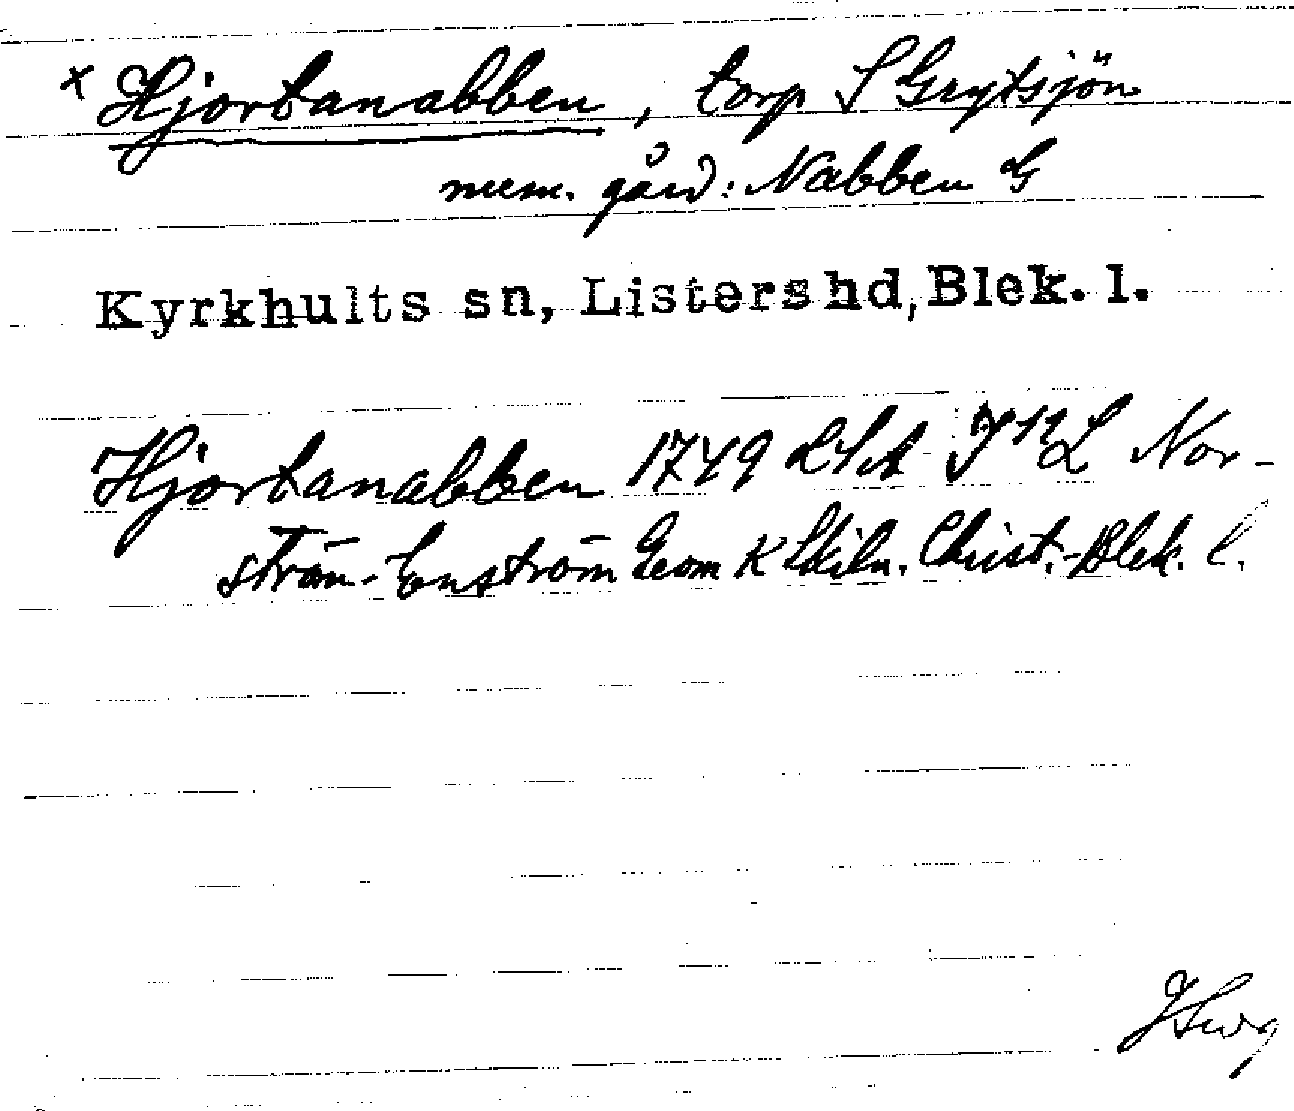 x Hjortanabben, torp S Grytsjön
num. gård: Nabben G
Kyrkhults sn, Listers hd, Blek. l.
Hjortanabben 1749 LSA J n L Nor-
ström-Enström Geom K Skiln. Christ.-Blek. l.